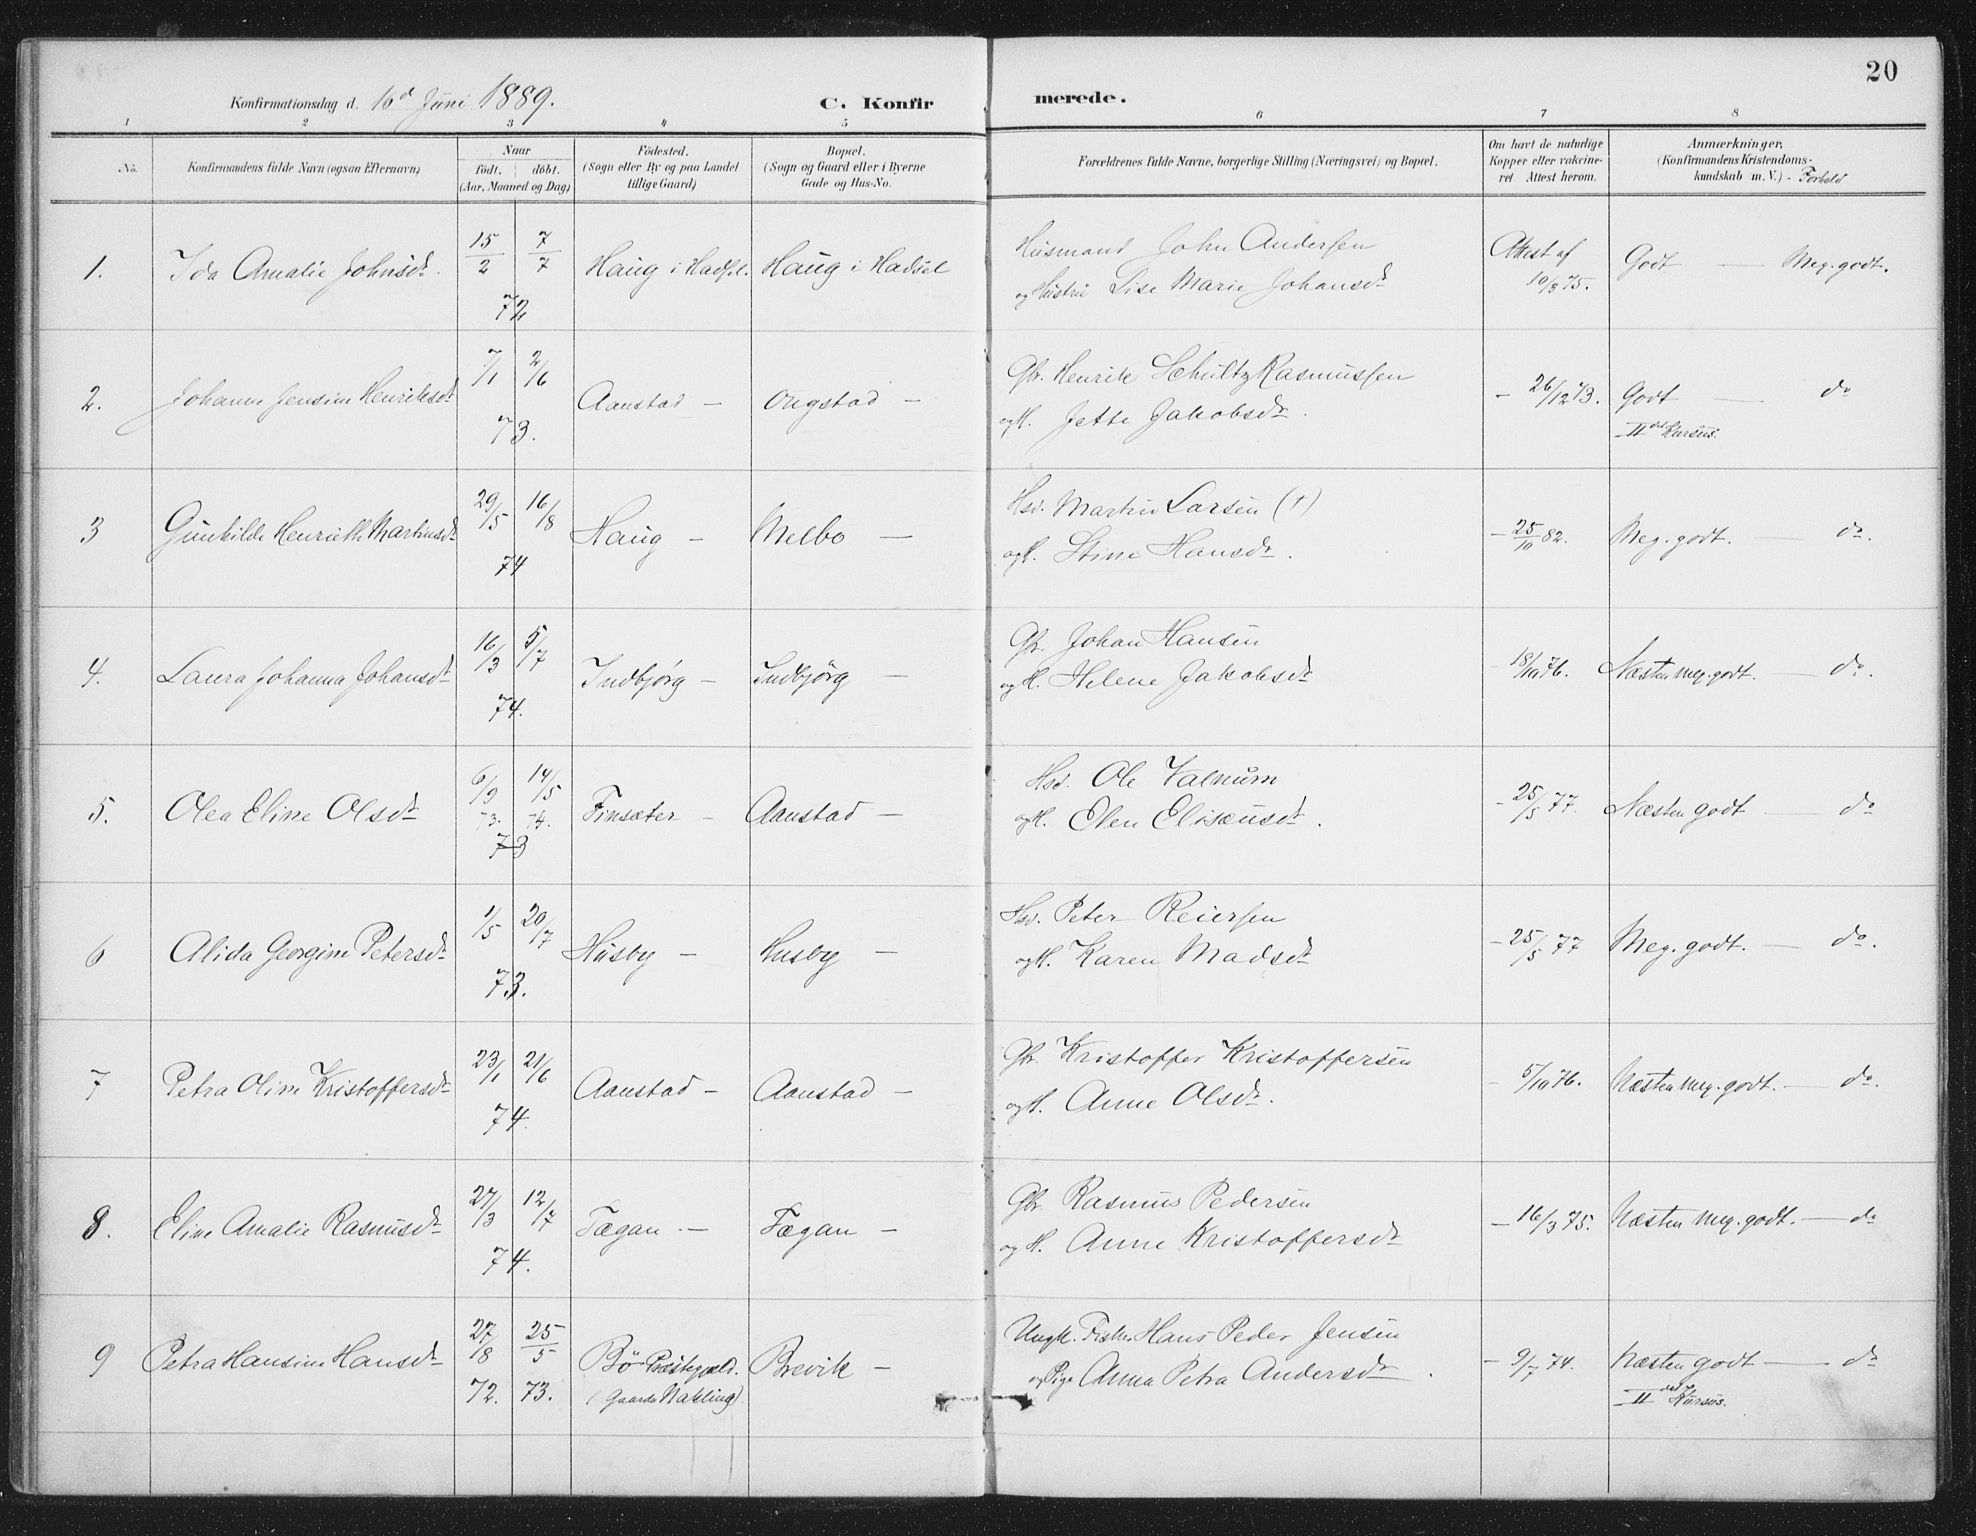 20
Konfirmationsdag d. 16d Juni 1889. C. Konfirmerede.
1 2 3 4 5 6 7 8
No. Konfirmandens fulde Navn (ogsaa Efternavn) Naar födt. döbt. (Aar, Maaned og Dag) Födested. (Sogn eller By og paa Landet tillige Gaard) Bopæl. (Sogn og Gaard eller i Byerne Gade og Hus-No. Forældrenes fulde Navne, borgerlige Stilling (Næringsvei) og Bopæl. Om havt de naturlige Kopper eller vaccineret Attest herom. Anmærkninger, (Konfirmandens Kristendomskundskab m. V.) - Forhold
1. Ida Amalie Johnsdt. 15/2 7/7 72 Haug i Hadsel. Haug i Hadsel
Husmand John Andersen Attest af 10/8 75. Godt — Meg. godt.
og Hustru Lise Marie Johansdt
2. Johanna Jensine Henriksdt 7/1 2/6 73. Aanstad — Ongstad —
Gbr. Henrik Schultz Rasmussen — 26/12 73. Godt — do
og H. Jette Jakobsdt. IIdet Kursus.
3 Gunhilde Henriette Martinsdt 29/5 16/8 74 Haug — Melbo —
Hsd. Martin Larsen (†) — 25/10 82. Meg. godt. — do.
og H. Stine Hansdt.
4. Laura Johanna Johansdt 16/3 5/7 74. Indbjørg — Indbjörg —
Gbr. Johan Hansen — 18/10 76. Næsten meg. godt. — do.
og H. Helene Jakobsdt
5. Olea Eline Olsdt 6/9 73. 14/5 74. 73 Finsæter — Aanstad —
Hsd. Ole Valnum — 25/5 77. Næsten godt — do
og H. Elen Elisæusdt.
6 Alida Georgine Petersdt 1/5 20/7 73. Husby — Husby —
Hsd. Peter Reiersen — 25/5 77 Meg. godt. — do.
og H. Karen Madsdt
7 Petra Oline Kristoffersdt 23/1 21/6 74. Aanstad — Aanstad —
Gbr. Kristoffer Kristoffersen — 5/10 76. Næsten meg. godt. — do.
og H. Anne Olsdt.
8. Eline Amalie Rasmusdt 27/3 12/7 74. Tægan — Fægan —
Gbr. Rasmus Pedersen — 16/3 75. Næsten meg. godt. — do
og H. Anne Kristoffersdt
9 Petra Hansine Hansdt 27/8 72. 25/5 73. Bö Præstegjæld. (Gaarden Nakling). Brevik —
Ungk. Fisker Hans Peder Jensen — 9/7 74. Næsten godt — do
og Pige Anna Petra Andersdt. IIdet Kursus.